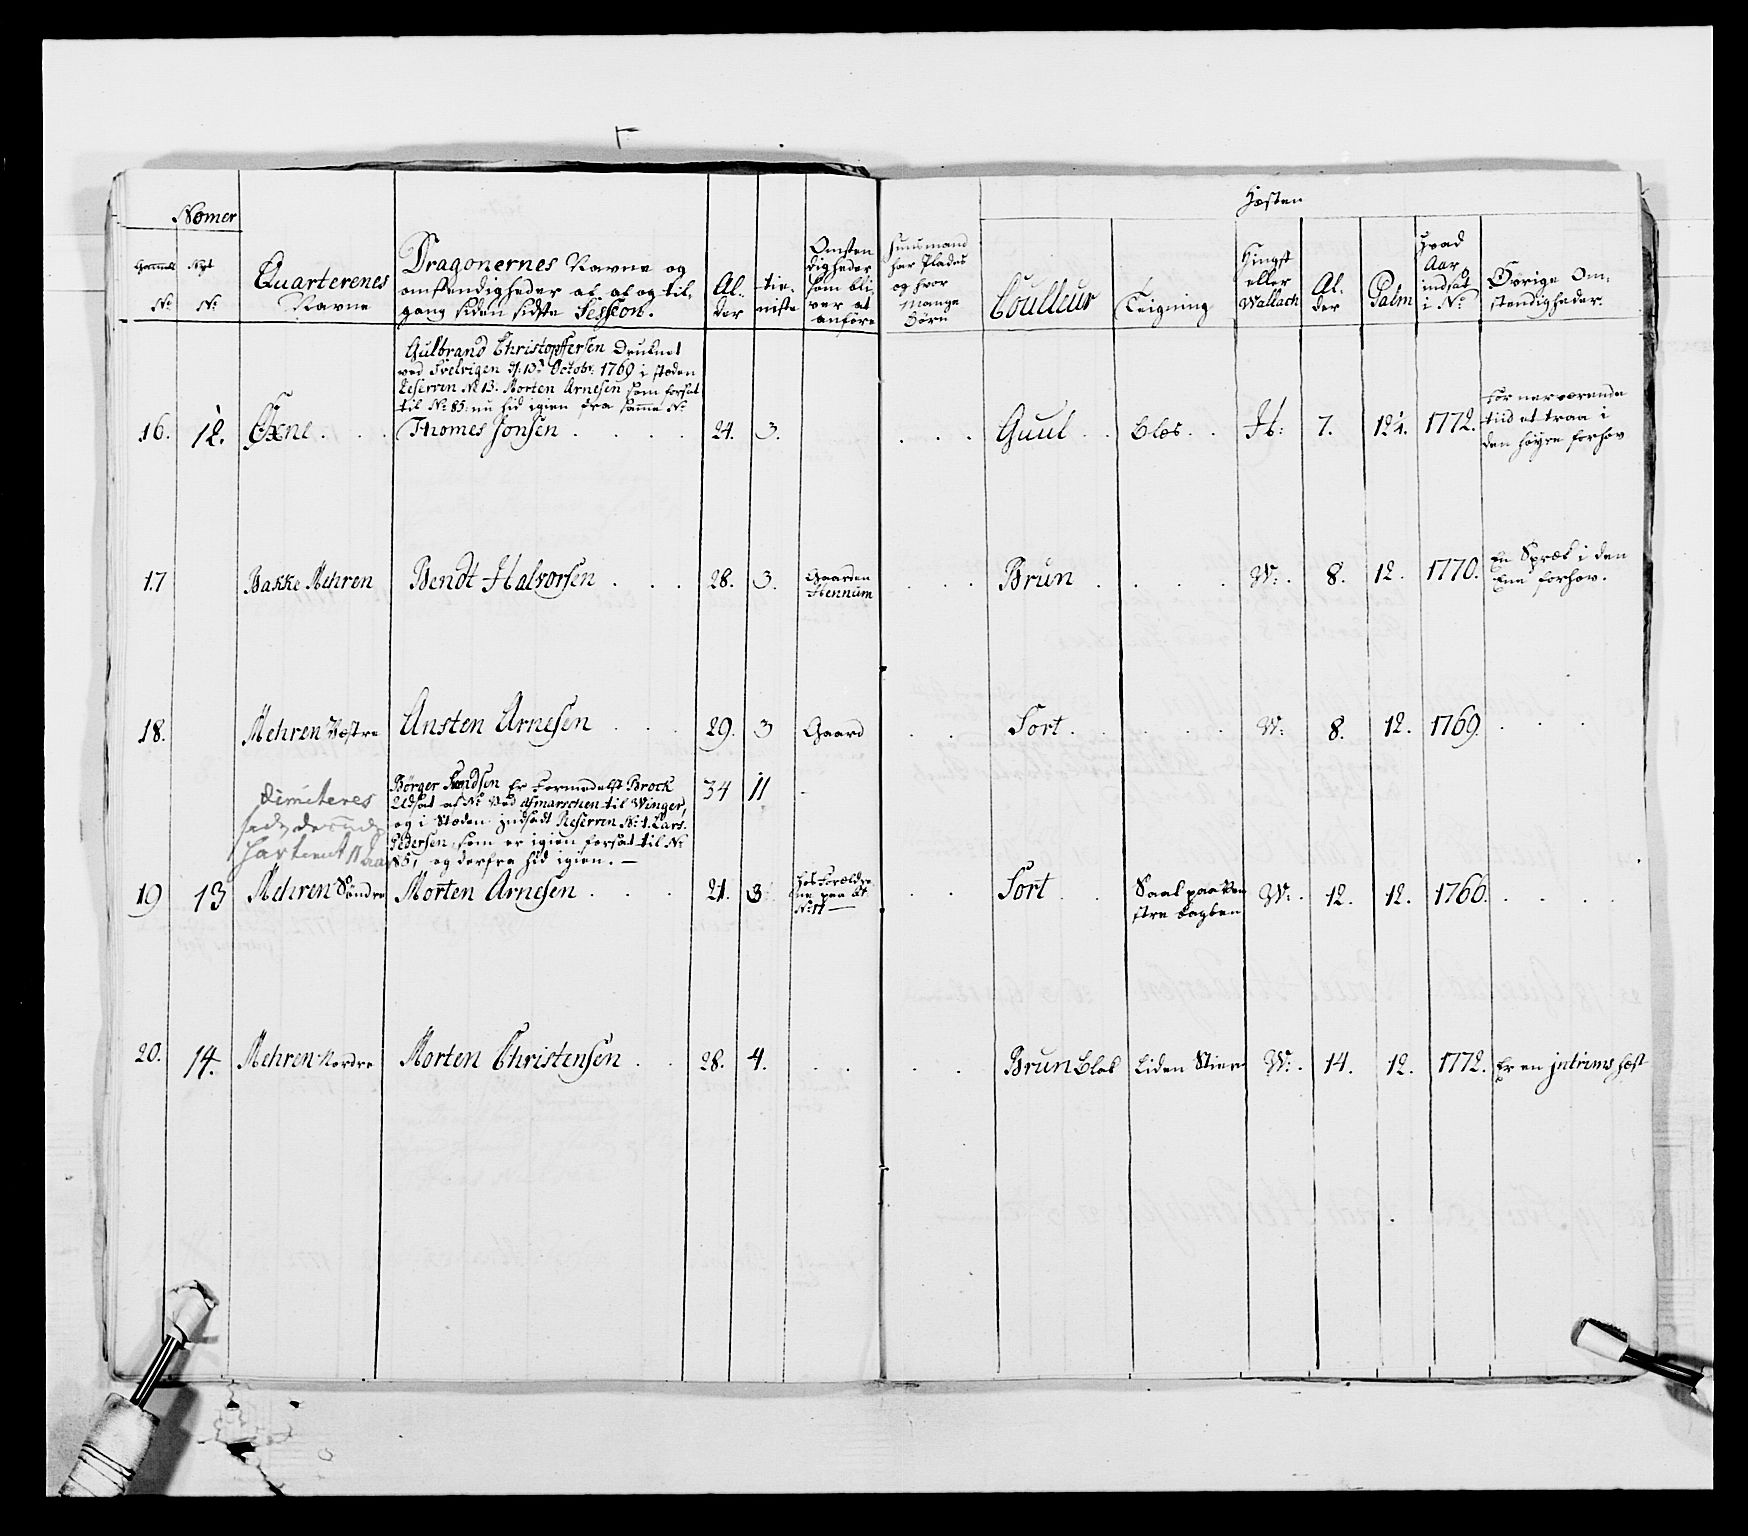 Nomer
Gammelt Nyt
No No
Quarterenes
Navne
Dragonernes Navne og
omstendigheder af af og til,
gang siden sidste Session.
Al-
der
tie-
niste
Omsten
digheder
som bli
ver at
anføre
Huusmand
har Plades
og hvor
mange
Børn
Hæsten
Coulleur
Teigning
Hingst
eller
Wallach
Al-
der
Palm
Hvad
Aar
indsat
i No
Øvrige Om-
stendigheder.
Gulbrand Christopffersen Druknet
ved Svelvigen d: 10de Octobr: 1769 i steden
Reserven No 13. Morten Arnesen som forsat
til No 85: nu hid igien fra samme No
16. 12. Øxne . . . Thomes Jonsen . . . . 24. 3. . . . Guul . . bles . . H: 7. 12¼. 1772.
for nerværende
tiid et traa i
den høyre forhov
17 Bakke Mehren Bendt Halvorsen . . . 28. 3.
Gaarden
Hennum
. . . Brun . . . . W: . 8. 12. 1770.
En Spræk i den
Ene forhov.
18. Mehren Vestre Ansten Arnesen . . . 29. 3 Gaard . . Sort . . . . . W: 8. 12. 1769. . . .
dimiteres
har tient 11 Aar
Børger Svendsen Er formedelst Brock
Udsat af No Ved afmarschen til Winger,
og i Steden indsadt Reserven No: 1. Lars
Pedersen, som er igien forsat til No
85, og derfra hid igien. —
34 11
19 13 Mehren Søndre Morten Arnesen . . . 21. 3
hos Forældre
ne paa et
No 17
. . Sort . .
Saal paa ven
stre bagben
W: . 12. 12. 1766. . . . .
20. 14. Mehren Nordre Morten Christensen . . 28. 4. . . . . Brun bles Liden Stiern W: . 14. 12. 1772. Er en jntrims Hest